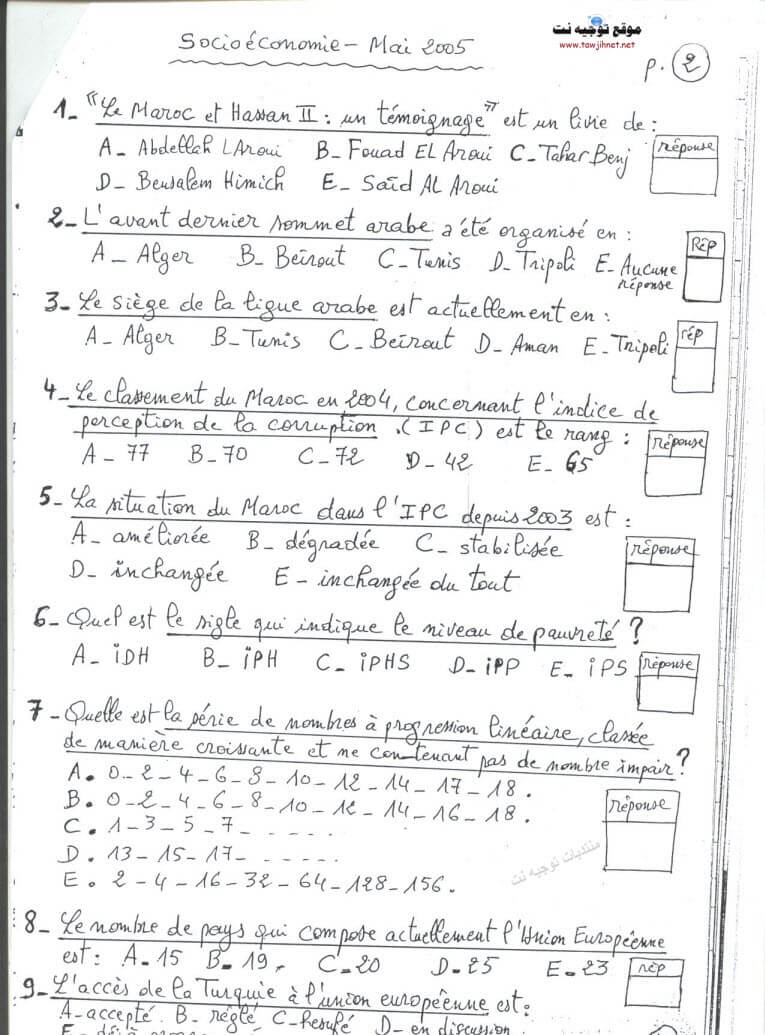 موقع توجيه نت
www.tawjihnet.net
Socioéconomie - Mai 2005
p. 2
1- "Le Maroc et Hassan II : un témoignage" est un livre de :
A - Abdellah LAroui B - Fouad EL Aroui C - Tahar Benj
D - Bensalem Himich E - Saïd AL Aroui
réponse
2 - L'avant dernier sommet arabe a été organisé en :
A - Alger B - Beïrout C - Tunis D - Tripoli E - Aucune réponse
Rép
3 - Le siège de la ligue arabe est actuellement en :
A - Alger B - Tunis C - Beïrout D - Aman E - Tripoli
rép
4 - Le classement du Maroc en 2004, concernant l'indice de
perception de la corruption .(IPC) est le rang :
A - 77 B - 70 C - 72 D - 42 E - 65
réponse
5 - La situation du Maroc dans l'IPC depuis 2003 est :
A - améliorée B - dégradée C - stabilisée
D - inchangée E - inchangée du tout
réponse
6 - Quel est le sigle qui indique le niveau de pauvreté ?
A - iDH B - iPH C - iPHS D - iPP E - iPS
réponse
7 - Quelle est la série de nombres à progression linéaire, classée
de manière croissante et ne contenant pas de nombre impair ?
A. 0 - 2 - 4 - 6 - 8 - 10 - 12 - 14 - 17 - 18 .
B. 0 - 2 - 4 - 6 - 8 - 10 - 12 - 14 - 16 - 18 .
C. 1 - 3 - 5 - 7 - - - - - -
D. 13 - 15 - 17 - - - - - -
E. 2 - 4 - 16 - 32 - 64 - 128 - 156 .
réponse
منتديات توجيه نت
8 - Le nombre de pays qui compose actuellement l'Union Européenne
est : A - 15 B - 19 - C - 20 D - 25 E - 23
rép
9 - L'accès de la Turquie à l'union européenne est :
A - accepté B - réglé C - refusé D - en discussion